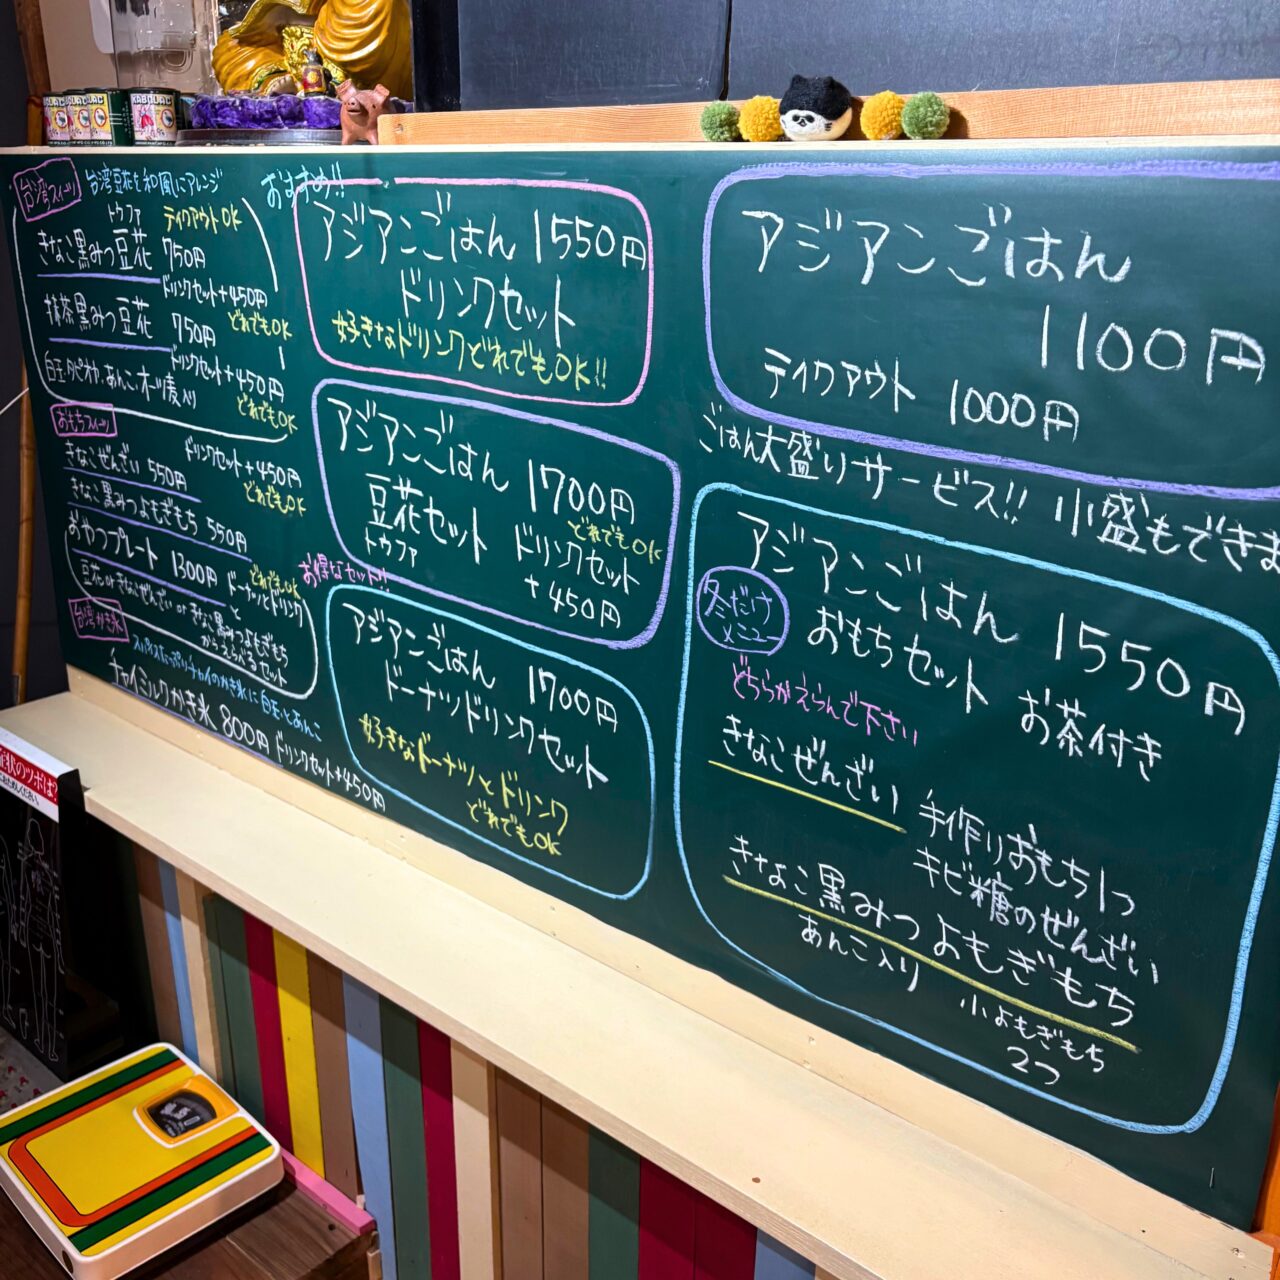 台湾スイーツ
台湾豆花を和風にアレンジ
トウファ
テイクアウトOK
きなこ黒みつ豆花 750円
ドリンクセット+450円
どれでもOK
抹茶黒みつ豆花 750円
ドリンクセット+450円
どれでもOK
白玉、タピオカ、あんこ、オーツ麦入り
おもちスイーツ
きなこぜんざい 550円
ドリンクセット+450円
どれでもOK
きなこ黒みつよもぎもち 550円
おやつプレート 1300円
どれでもOK
ドーナツとドリンク
と
豆花 or きなこぜんざい or きなこ黒みつよもぎもち
からえらべるセット
台湾かき氷
スパイスたっぷりチャイのかき氷に白玉とあんこ
チャイミルクかき氷 800円
ドリンクセット+450円
おすすめ!!
アジアンごはん 1550円
ドリンクセット
好きなドリンクどれでもOK!!
アジアンごはん 1700円
豆花セット
トウファ
どれでもOK
ドリンクセット
+450円
お得なセット!!
アジアンごはん 1700円
ドーナツドリンクセット
好きなドーナツとドリンク
どれでもOK
アジアンごはん
1100円
テイクアウト 1000円
ごはん大盛りサービス!! 小盛もできま
アジアンごはん 1550円
冬だけ
メニュー
おもちセット お茶付き
どちらかえらんで下さい
きなこぜんざい
手作りおもち1つ
キビ糖のぜんざい
きなこ黒みつよもぎもち
あんこ入り
小よもぎもち
2つ
症状のツボは?